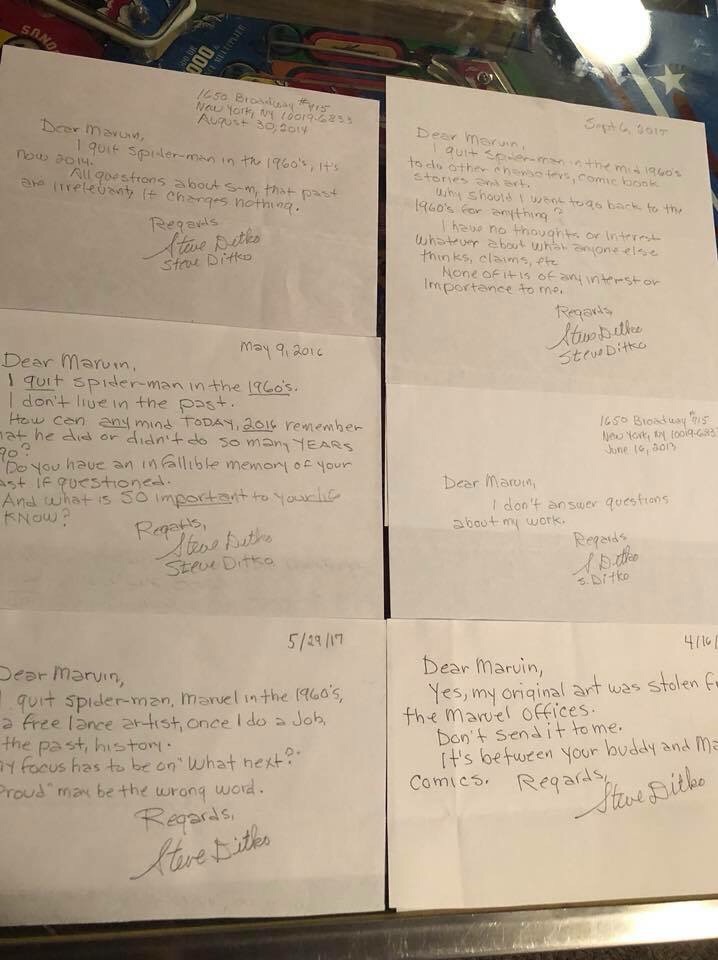 1650 Broadway #715
New York, NY 10019-6833
August 30, 2014
Dear Marvin,
I quit Spider-man in the 1960's, it's
now 2014.
All questions about S-m, that past
are irrelevant, It changes nothing.
Regards
Steve Ditko
Steve Ditko
Sept 6, 2015
Dear Marvin,
I quit Spider-man in the mid 1960's
to do other characters, comic book
stories and art.
Why should I want to go back to the
1960's for anything?
I have no thoughts or interest
whatever about what anyone else
thinks, claims, etc
None of it is of any interest or
importance to me.
Regards,
Steve Ditko
Steve Ditko
May 9, 2016
Dear Marvin,
I quit Spider-man in the 1960's.
I don't live in the past.
How can any mind TODAY, 2016 remember
hat he did or didn't do SO many YEARS
go?
Do you have an infallible memory of your
ast if questioned.
And what is SO important to your
KNOW?
Regards,
Steve Ditko
Steve Ditko
1650 Broadway #715
New York, NY 10019-6833
June 16, 2013
Dear Marvin,
I don't answer questions
about my work.
Regards
S Ditko
S. Ditko
5/29/17
Dear Marvin,
I quit Spider-man, Marvel in the 1960's,
a free lance artist, once I do a Job,
the past, history.
y focus has to be on "What next?"
Proud" may be the wrong word.
Regards,
Steve Ditko
4/16/
Dear Marvin,
Yes, my original art was stolen fr
the Marvel offices.
Don't send it to me.
It's between your buddy and Ma
Comics. Regards,
Steve Ditko